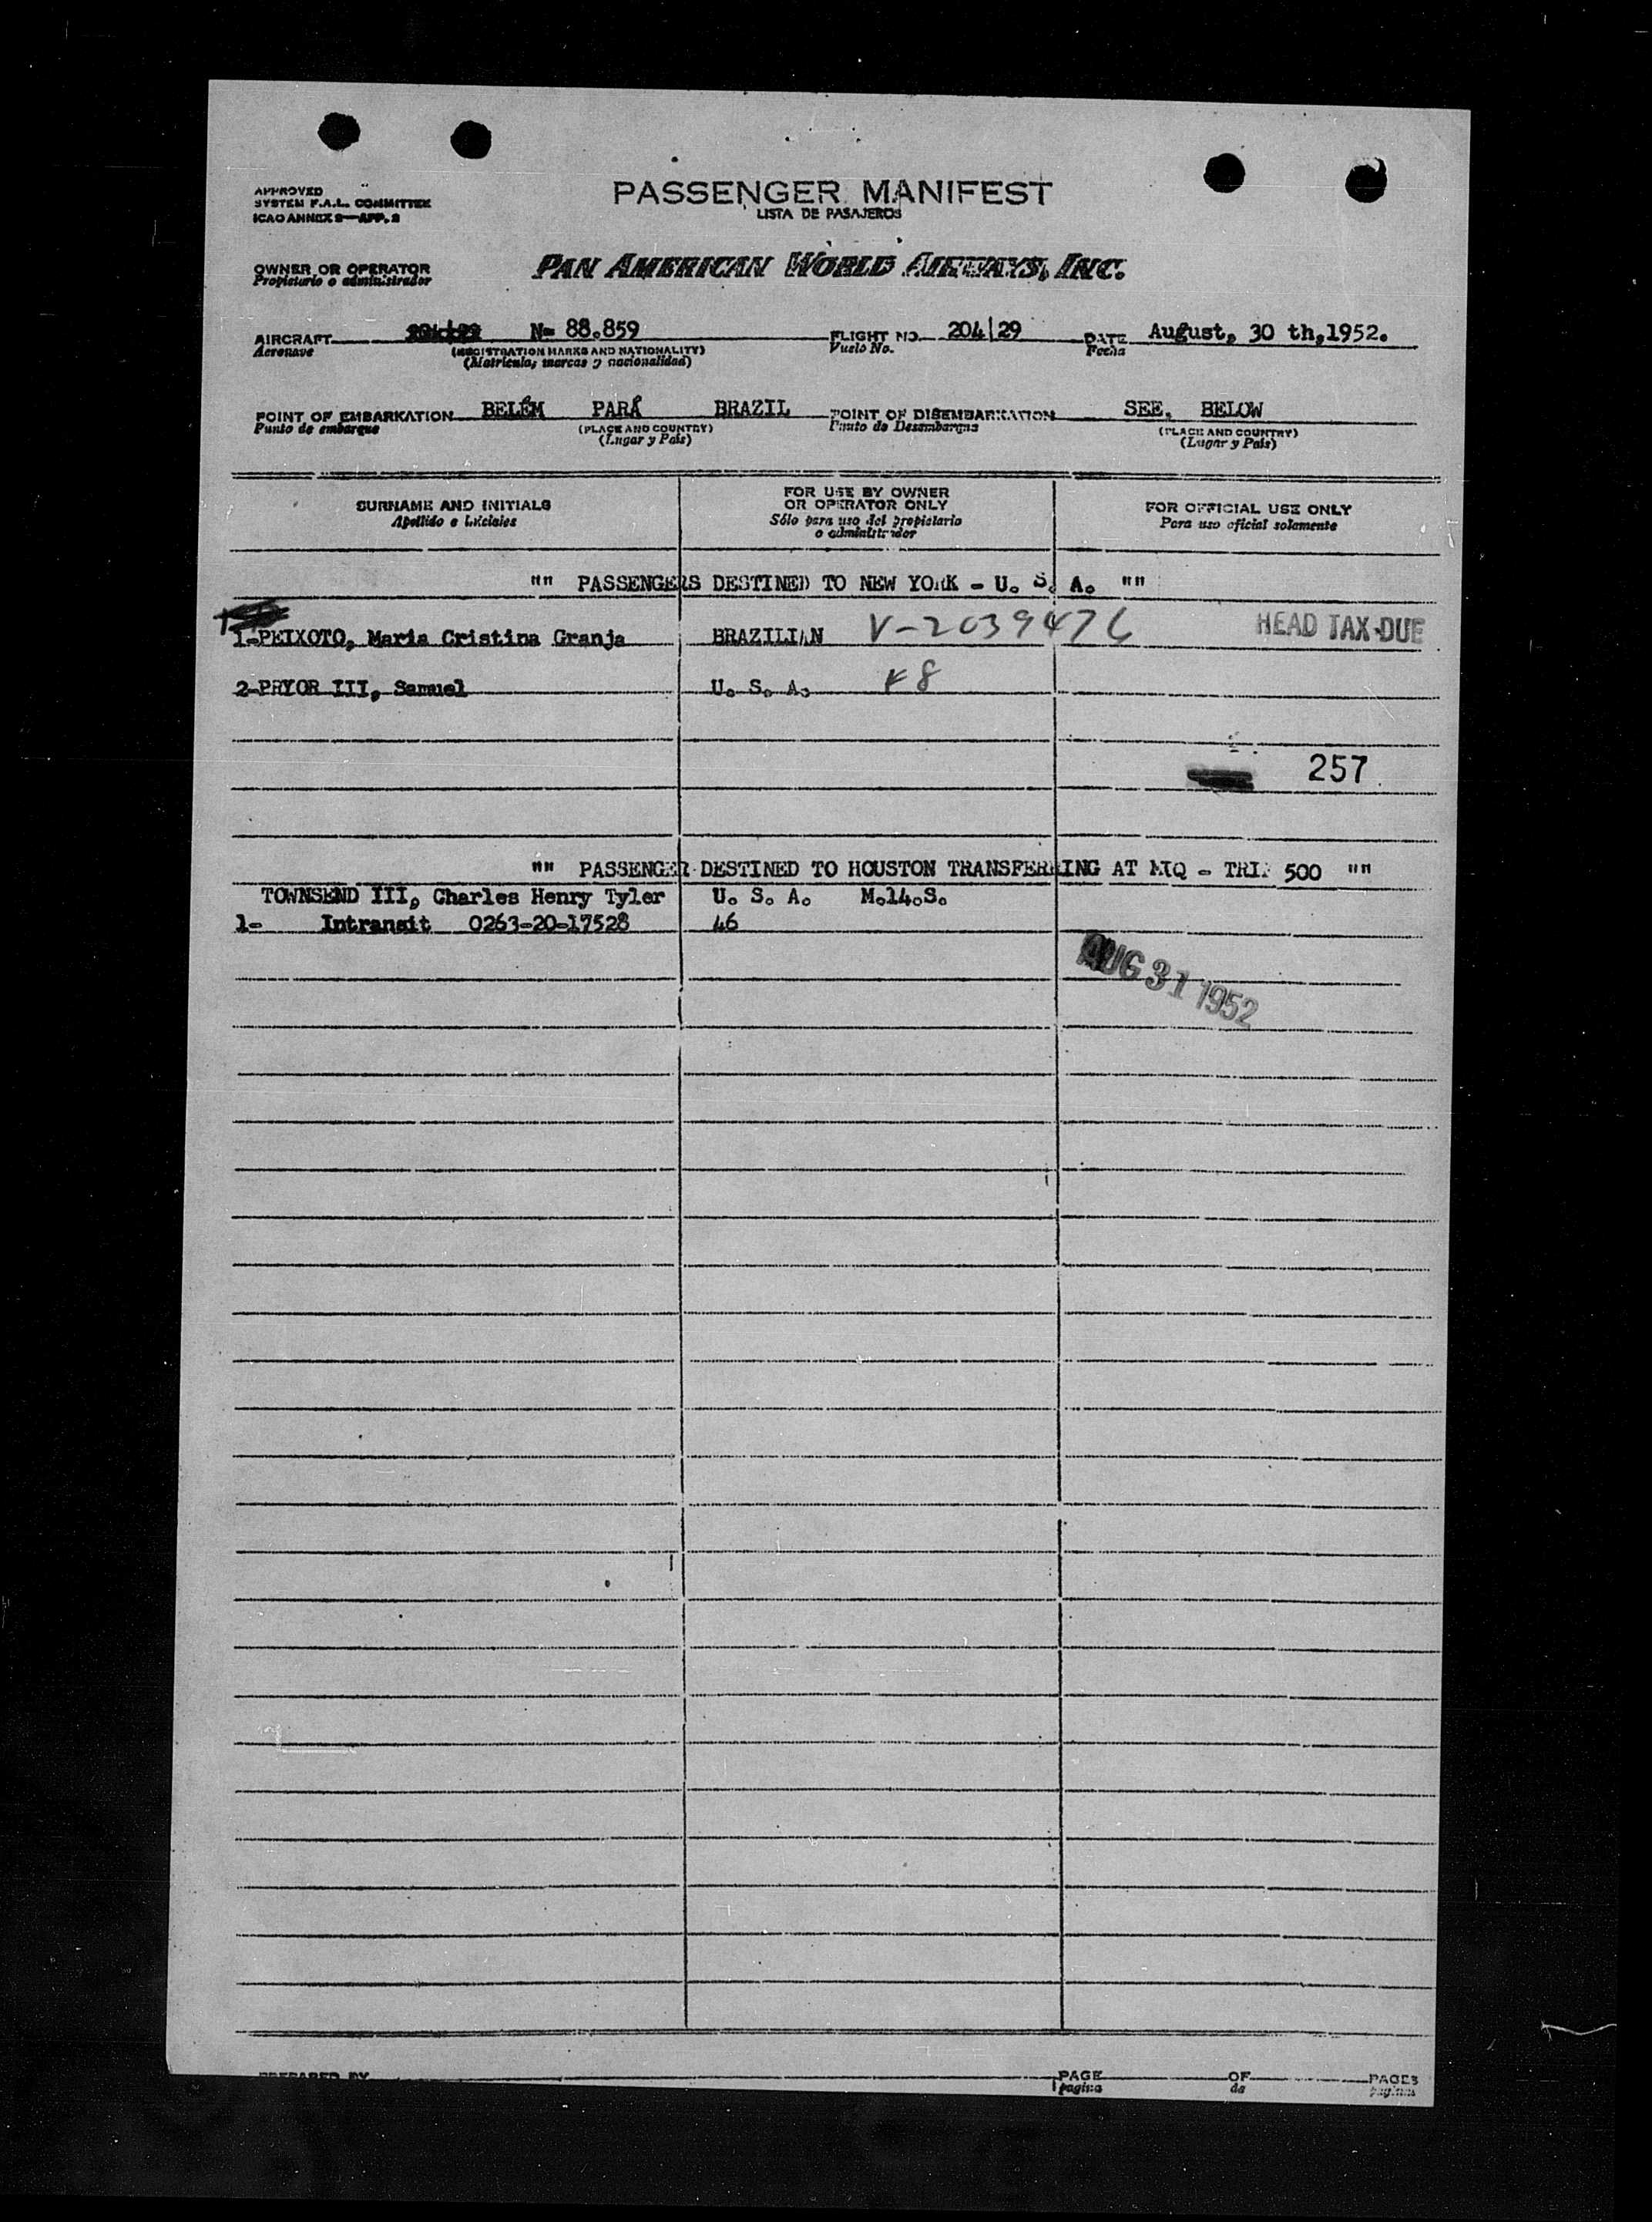 APPROVED
SYSTEM F.A.L. COMMITTEE
ICAO ANNEX 9—APP. 2
PASSENGER MANIFEST
LISTA DE PASAJEROS
OWNER OR OPERATOR
Propietario o administrador
PAN AMERICAN WORLD AIRWAYS, INC.
AIRCRAFT 204/29 N= 88.859 FLIGHT NO. 204/29 DATE August, 30 th,1952.
Aeronave (REGISTRATION MARKS AND NATIONALITY) Vuelo No. Fecha
(Matricula, marcas y nacionalidad)
POINT OF EMBARKATION BELÉM PARÁ BRAZIL POINT OF DISEMBARKATION SEE, BELOW
Punto de embarque (PLACE AND COUNTRY) Punto de Desembarque (PLACE AND COUNTRY)
(Lugar y Pais) (Lugar y Pais)
SURNAME AND INITIALS
Apellido e Iniciales
FOR USE BY OWNER
OR OPERATOR ONLY
Sólo para uso del propietario
o administrador
FOR OFFICIAL USE ONLY
Para uso oficial solamente
"" PASSENGERS DESTINED TO NEW YORK - U. S. A. ""
1-PEIXOTO, Maria Cristina Granja BRAZILIAN V-2039476 HEAD TAX DUE
2-PRYOR III, Samuel U. S. A. 48
257
"" PASSENGER DESTINED TO HOUSTON TRANSFERRING AT MIQ - TRIP 500 ""
TOWNSEND III, Charles Henry Tyler U. S. A. M.14.S.
1- Intransit 0263-20-17528 46
AUG 31 1952
PREPARED BY PAGE OF PAGES
pagina de paginas